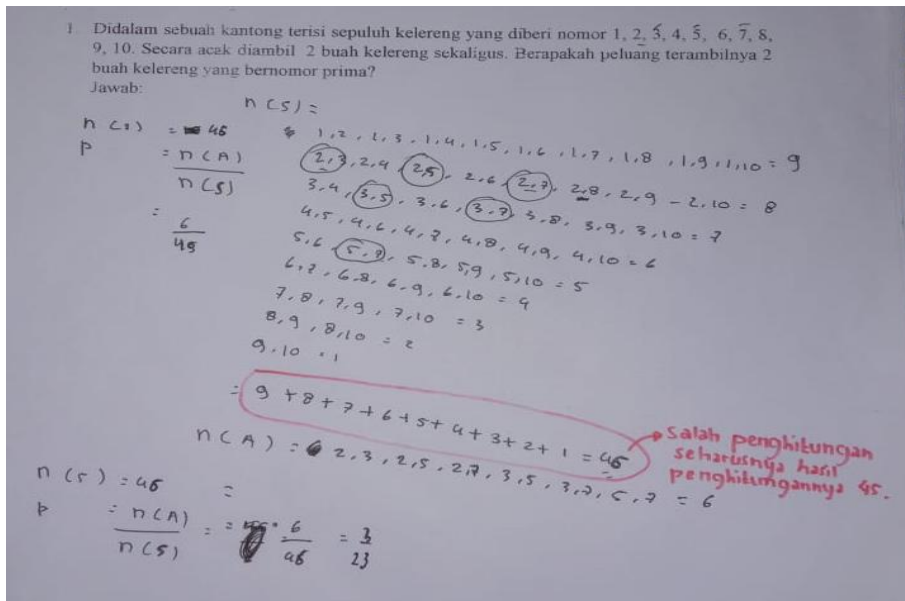 1. Didalam sebuah kantong terisi sepuluh kelereng yang diberi nomor 1, 2, 3, 4, 5, 6, 7, 8,
9, 10. Secara acak diambil 2 buah kelereng sekaligus. Berapakah peluang terambilnya 2
buah kelereng yang bernomor prima?
Jawab:
n (s) =
1,2, 1,3, 1,4, 1,5, 1,6, 1,7, 1,8, 1,9, 1,10 = 9
2,3, 2,4, 2,5, 2,6, 2,7, 2,8, 2,9 - 2,10 = 8
3,4, 3,5, 3,6, 3,7, 3,8, 3,9, 3,10 = 7
4,5, 4,6, 4,7, 4,8, 4,9, 4,10 = 6
5,6, 5,7, 5,8, 5,9, 5,10 = 5
6,7, 6,8, 6,9, 6,10 = 4
7,8, 7,9, 7,10 = 3
8,9, 8,10 = 2
9,10 = 1
= 9 + 8 + 7 + 6 + 5 + 4 + 3 + 2 + 1 = 46
n (s) = 46
P = n(A)
n(s)
= 6
Salah penghitungan
seharusnya hasil
penghitungannya 45.
n(A) = 2,3, 2,5, 2,7, 3,5, 3,7, 5,7 = 6
n (s) = 46 =
P = n(A) = = 6 = 3
n(s) 46 23